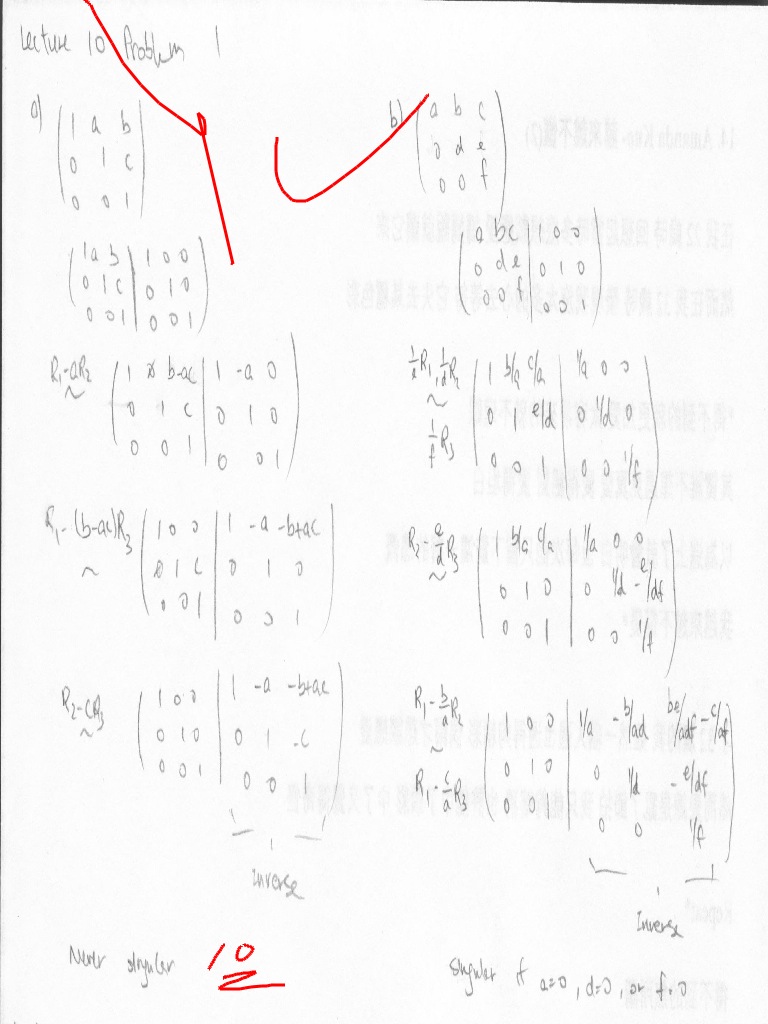 Lecture 10 Problem 1
a)
1 a b
0 1 c
0 0 1
1 a b | 1 0 0
0 1 c | 0 1 0
0 0 1 | 0 0 1
R₁-aR₂ ~
1 0 b-ac | 1 -a 0
0 1 c | 0 1 0
0 0 1 | 0 0 1
R₁-(b-ac)R₃ ~
1 0 0 | 1 -a -b+ac
0 1 c | 0 1 0
0 0 1 | 0 0 1
R₂-cR₃ ~
1 0 0 | 1 -a -b+ac
0 1 0 | 0 1 -c
0 0 1 | 0 0 1
Inverse
Never singular
10
b)
a b c
0 d e
0 0 f
a b c | 1 0 0
0 d e | 0 1 0
0 0 f | 0 0 1
R₁, 1/d R₂ ~ 1/f R₃
1 b/a c/a | 1/a 0 0
0 1 e/d | 0 1/d 0
0 0 1 | 0 0 1/f
R₂-e/d R₃ ~
1 b/a c/a | 1/a 0 0
0 1 0 | 0 1/d -e/df
0 0 1 | 0 0 1/f
R₁-b/a R₂ ~ R₁-c/a R₃
1 0 0 | 1/a -b/ad be/adf-c/af
0 1 0 | 0 1/d -e/df
0 0 1 | 0 0 1/f
Inverse
Singular if a=0, d=0, or f=0